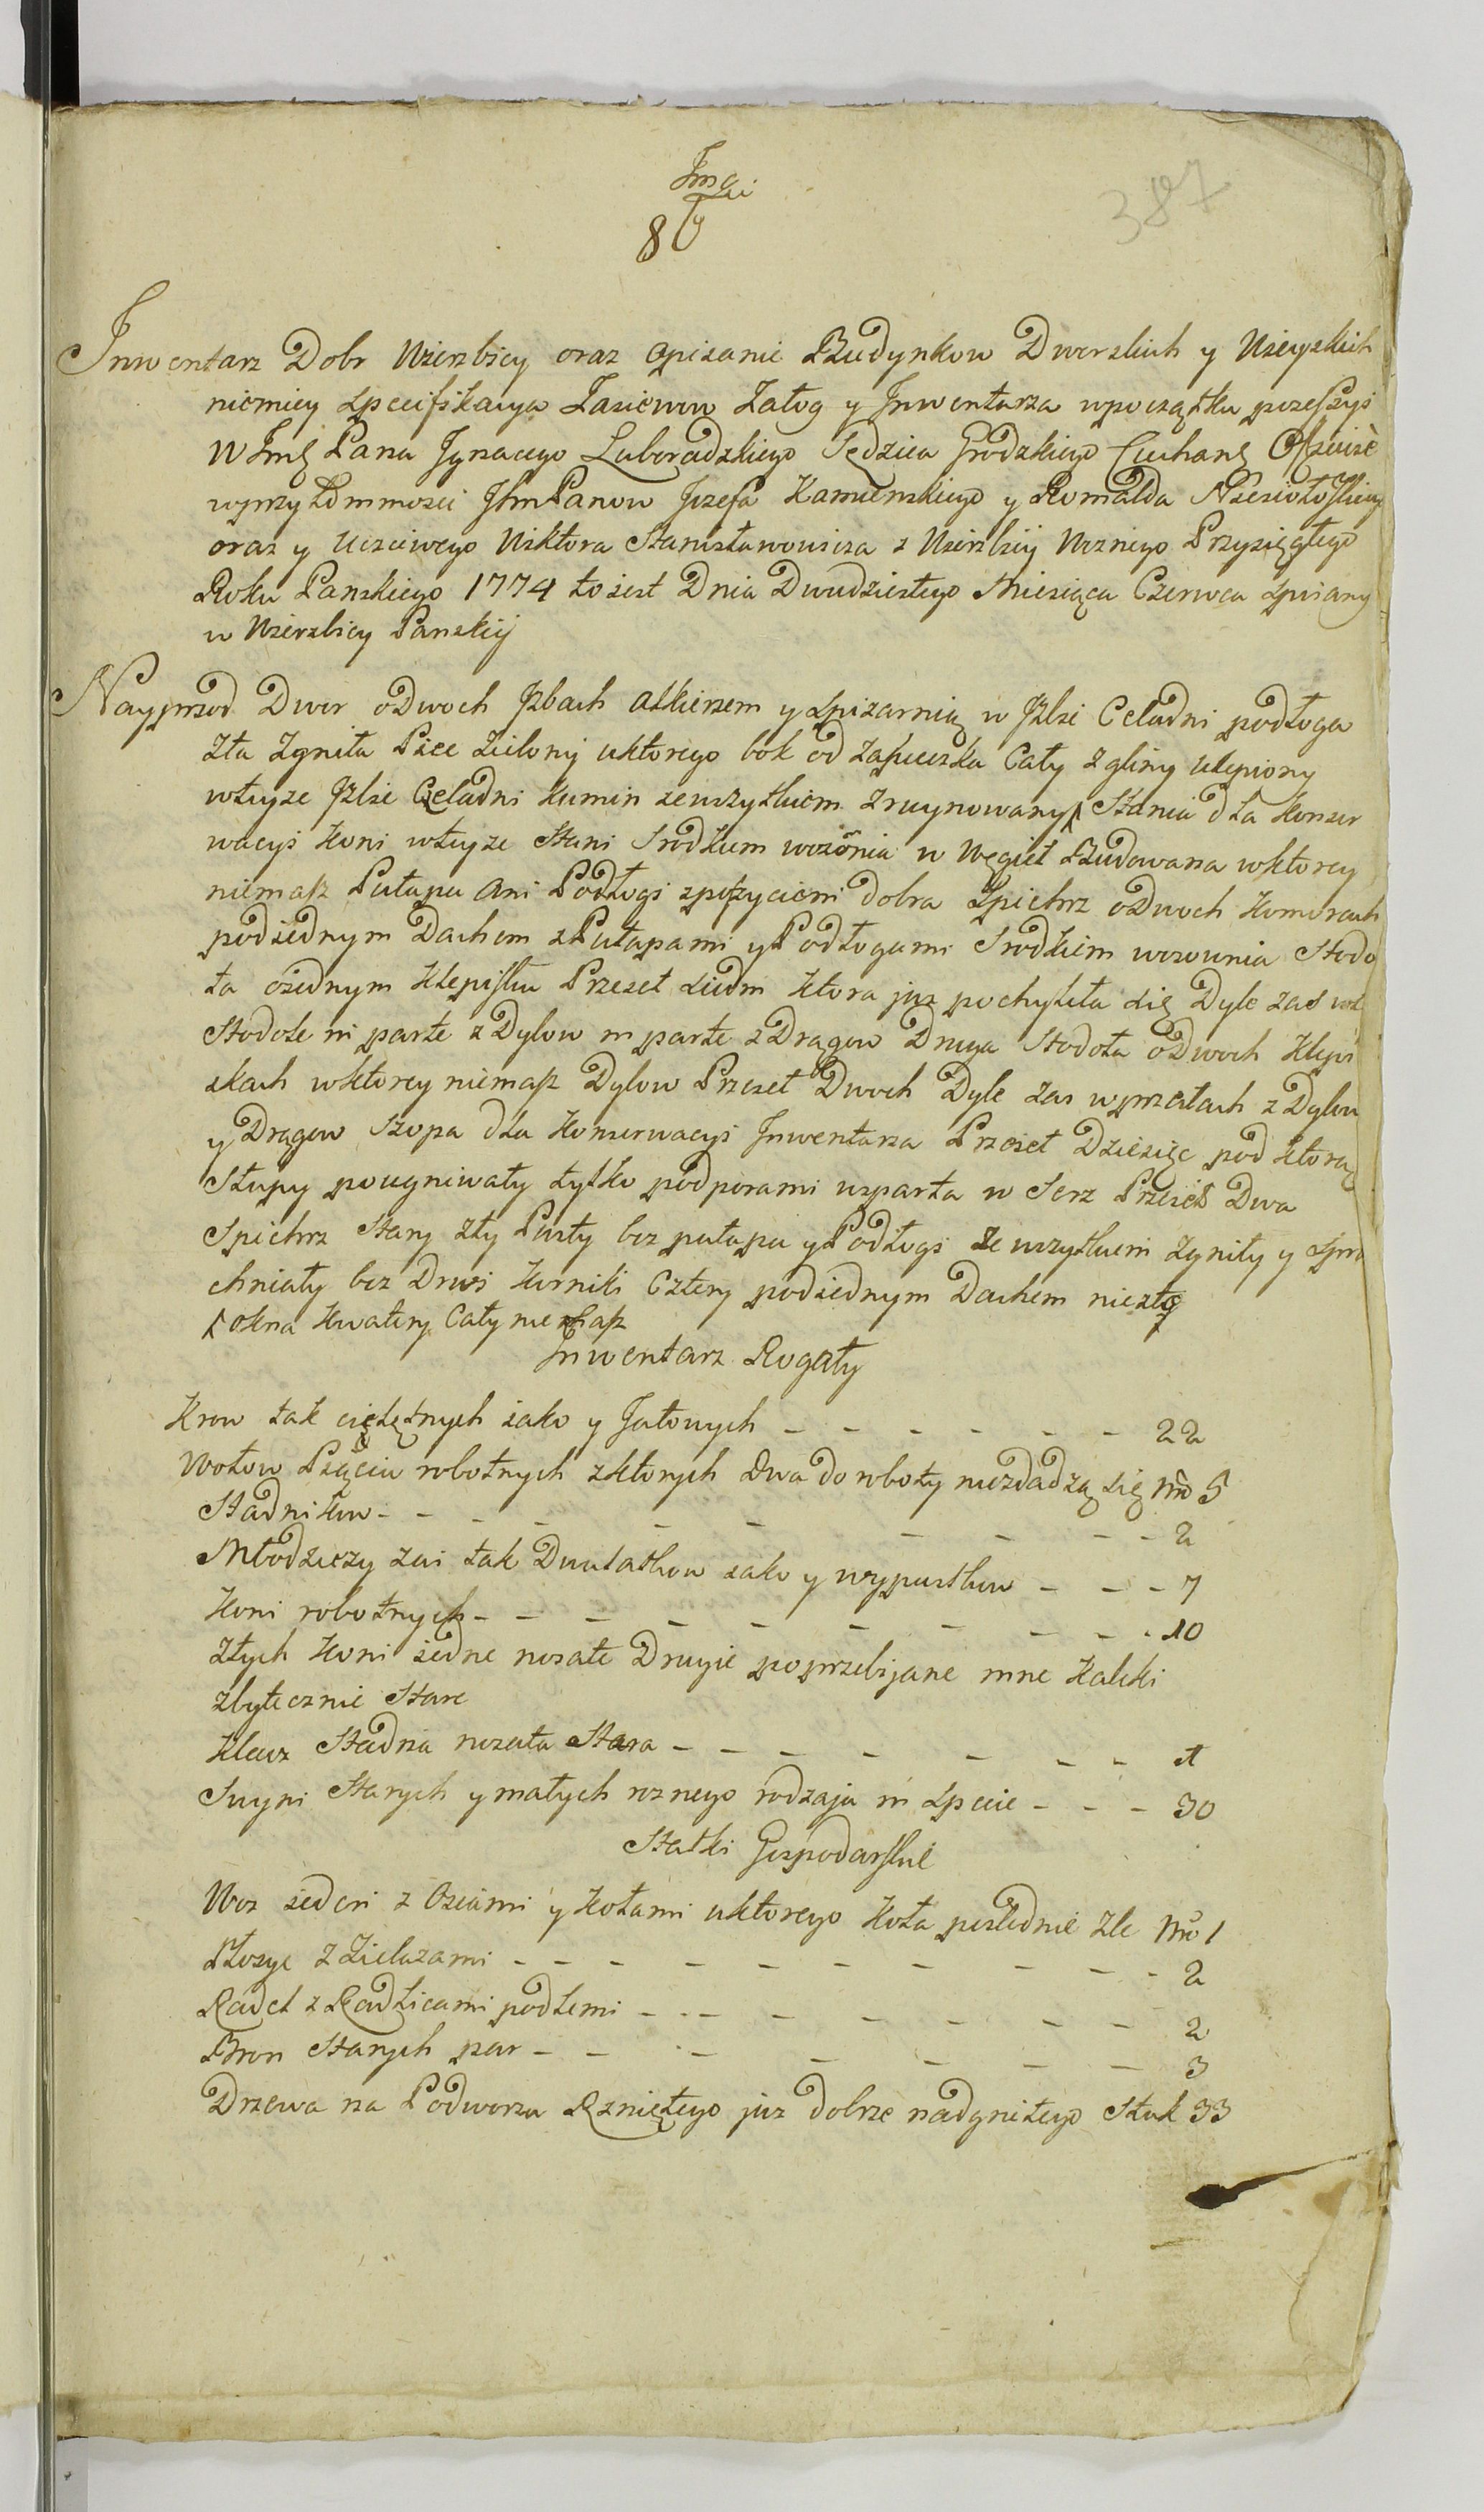 387
8
Inwentarz Dobr Wierzbicy oraz Opisanie Budynkow Dworskich y Wieyskich
niemniey Specifikacya Zasiewow Załog y Inwentarza wpoczątku possessyi
W Jmę Pana Jgnacego Luboradzkiego Sędzica Grodzkiego Ciechanę
wprzytomnosci JhmPanow Jozefa Kamienskiego y Romalda
oraz y Uczciwego Wiktora Stanisławowicza z Wierzbicy Woznego Przysięgłego
Roku Panskiego 1774 to iest Dnia Dwudziestego Miesiąca Czerwca spisany
w Wierzbicy Panskiy
Nayprzod Dwor oDwoch Jzbach Alkierzem y Spizarnią w Jzbie Celadni podłoga
zła zgniła Piec zielony uktorego bok od zapiecka Cały z gliny ulepiony
wteyze Jzbie Czeladni Kumin zewszytkiem zruynowany Stania dla Konser
wacyi Koni wteyze Stani Srodkiem wozonia w Węgieł Budowana wktorey
niemasz Pułapu Ani Podłogi zposzyciem dobra Spichrz oDwoch Komorach
podiednym Dachem zPułapami yPodłogami Srodkiem wozownia Stodo
ła oiednym Klepisku Przeseł siedm Ktora juz pochyleła się Dyle zas we
Stodole in parte z Dylow in parte zDrągow Druga Stodoła oDwoch Klepi
skach wktorey niemasz Dylow Przeseł Dwoch Dyle zas wprzełach z Dylow
y Drągow Szopa dla Konserwacyi Inwentarza Przeseł Dziesięc pod Ktorą
Słupy pougniwały tylko podporami wsparta w Serz Przeseł Dwa
Spichrz Stary zły Pusty bez pułapu yPodłogi Ze wszytkiem zgniły y spru
chniały bez Drwi Kurniki Cztery podiednym Dachem niezłe
okna Kwatery Cały niemasz
Inwentarz Rogaty
Krow tak cielętnych iako y Jałowych - - - - - - 22
Wołow Pięciu robotnych zktorych Dwa do roboty niezdadzą się Nro 5
Stadnikow - - - - - - - - 2
Młodzieży zas tak Dwulatkow iako y wypustkow - - - 7
Koni robotnych - - - - - - - - - 10
Złych Koni iedne nosate Drugie poprzebijane inne Kaleki
zbytecznie Stare
Klacz Stadna nosata Stara - - - - - - - 1
Swyni Starych y małych roznego rodzaju in specie - - - 30
Statki Gospodarskie
Woz ieden z Osiami y Kołami uktorego Koła poslednie złe Nro 1
Płosyc z Zielazami - - - - - - - - - - 2
Radeł z Radlicami podłemi - - - - - - - - 2
Bron Starych par - - - - - - - 3
Drzewa na Podworzu Rzniętego juz dobrze nadgniłego Sztuk 33